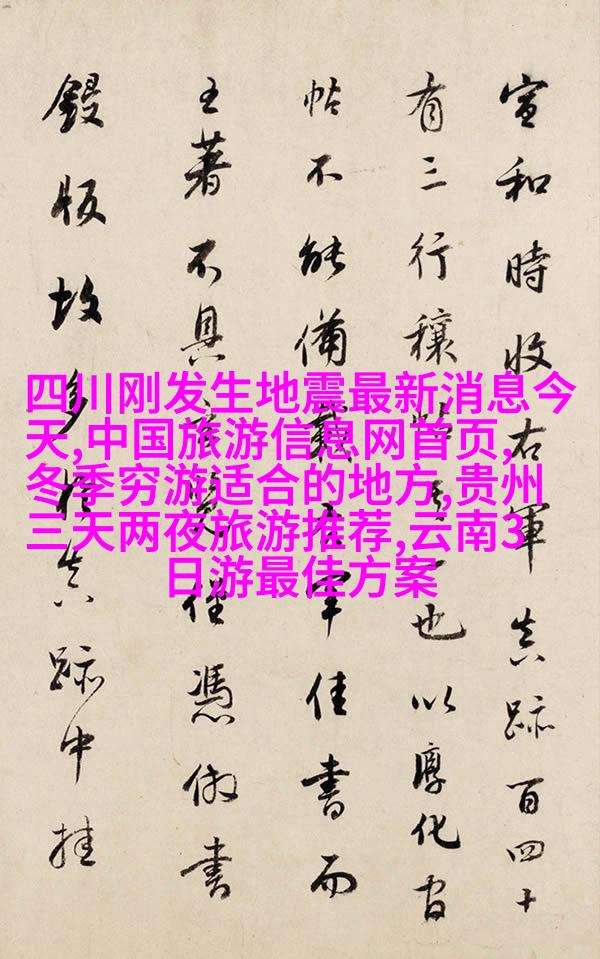 宣和時收右軍真跡百四十
有三行穰帖一也以淳化官
帖不能備載右軍佳書而
王著不具憑倣書
鋟版故多真跡中挂
四川刚发生地震最新消息今
天,中国旅游信息网首页,
冬季穷游适合的地方,贵州
三天两夜旅游推荐,云南3
日游最佳方案